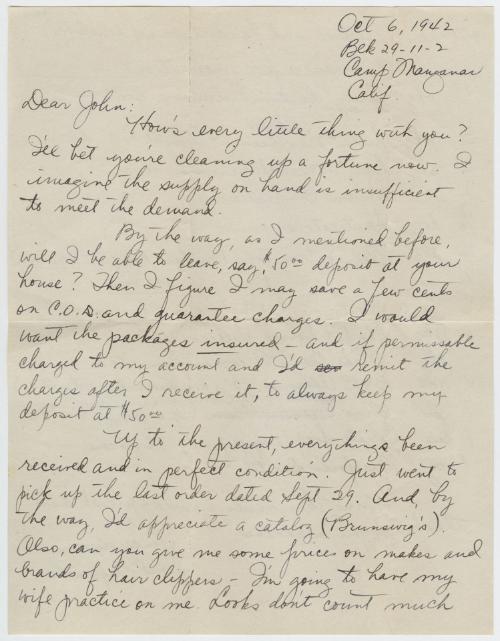 Oct 6, 1942
Blk 29-11-2
Camp Manzanar
Calif.
Dear John:
How's every little thing with you?
I'll bet you're cleaning up a fortune now. I
imagine the supply on hand is insufficient
to meet the demand.
By the way, as I mentioned before,
will I be able to leave, say, $50.00 deposit at your
house? Then I figure I may save a few cents
on C.O.D. and guarantee charges. I would
want the packages insured - and if permissable
charged to my account and I'd remit the
charges after I receive it, to always keep my
deposit at $50.00
Up to the present, everything's been
received and in perfect condition. Just went to
pick up the last order dated Sept 29. And, by
the way, I'd appreciate a catalog (Brunswig's).
Also, can you give me some prices on makes and
brands of hair clippers - I'm going to have my
wife practice on me. Looks don't count much